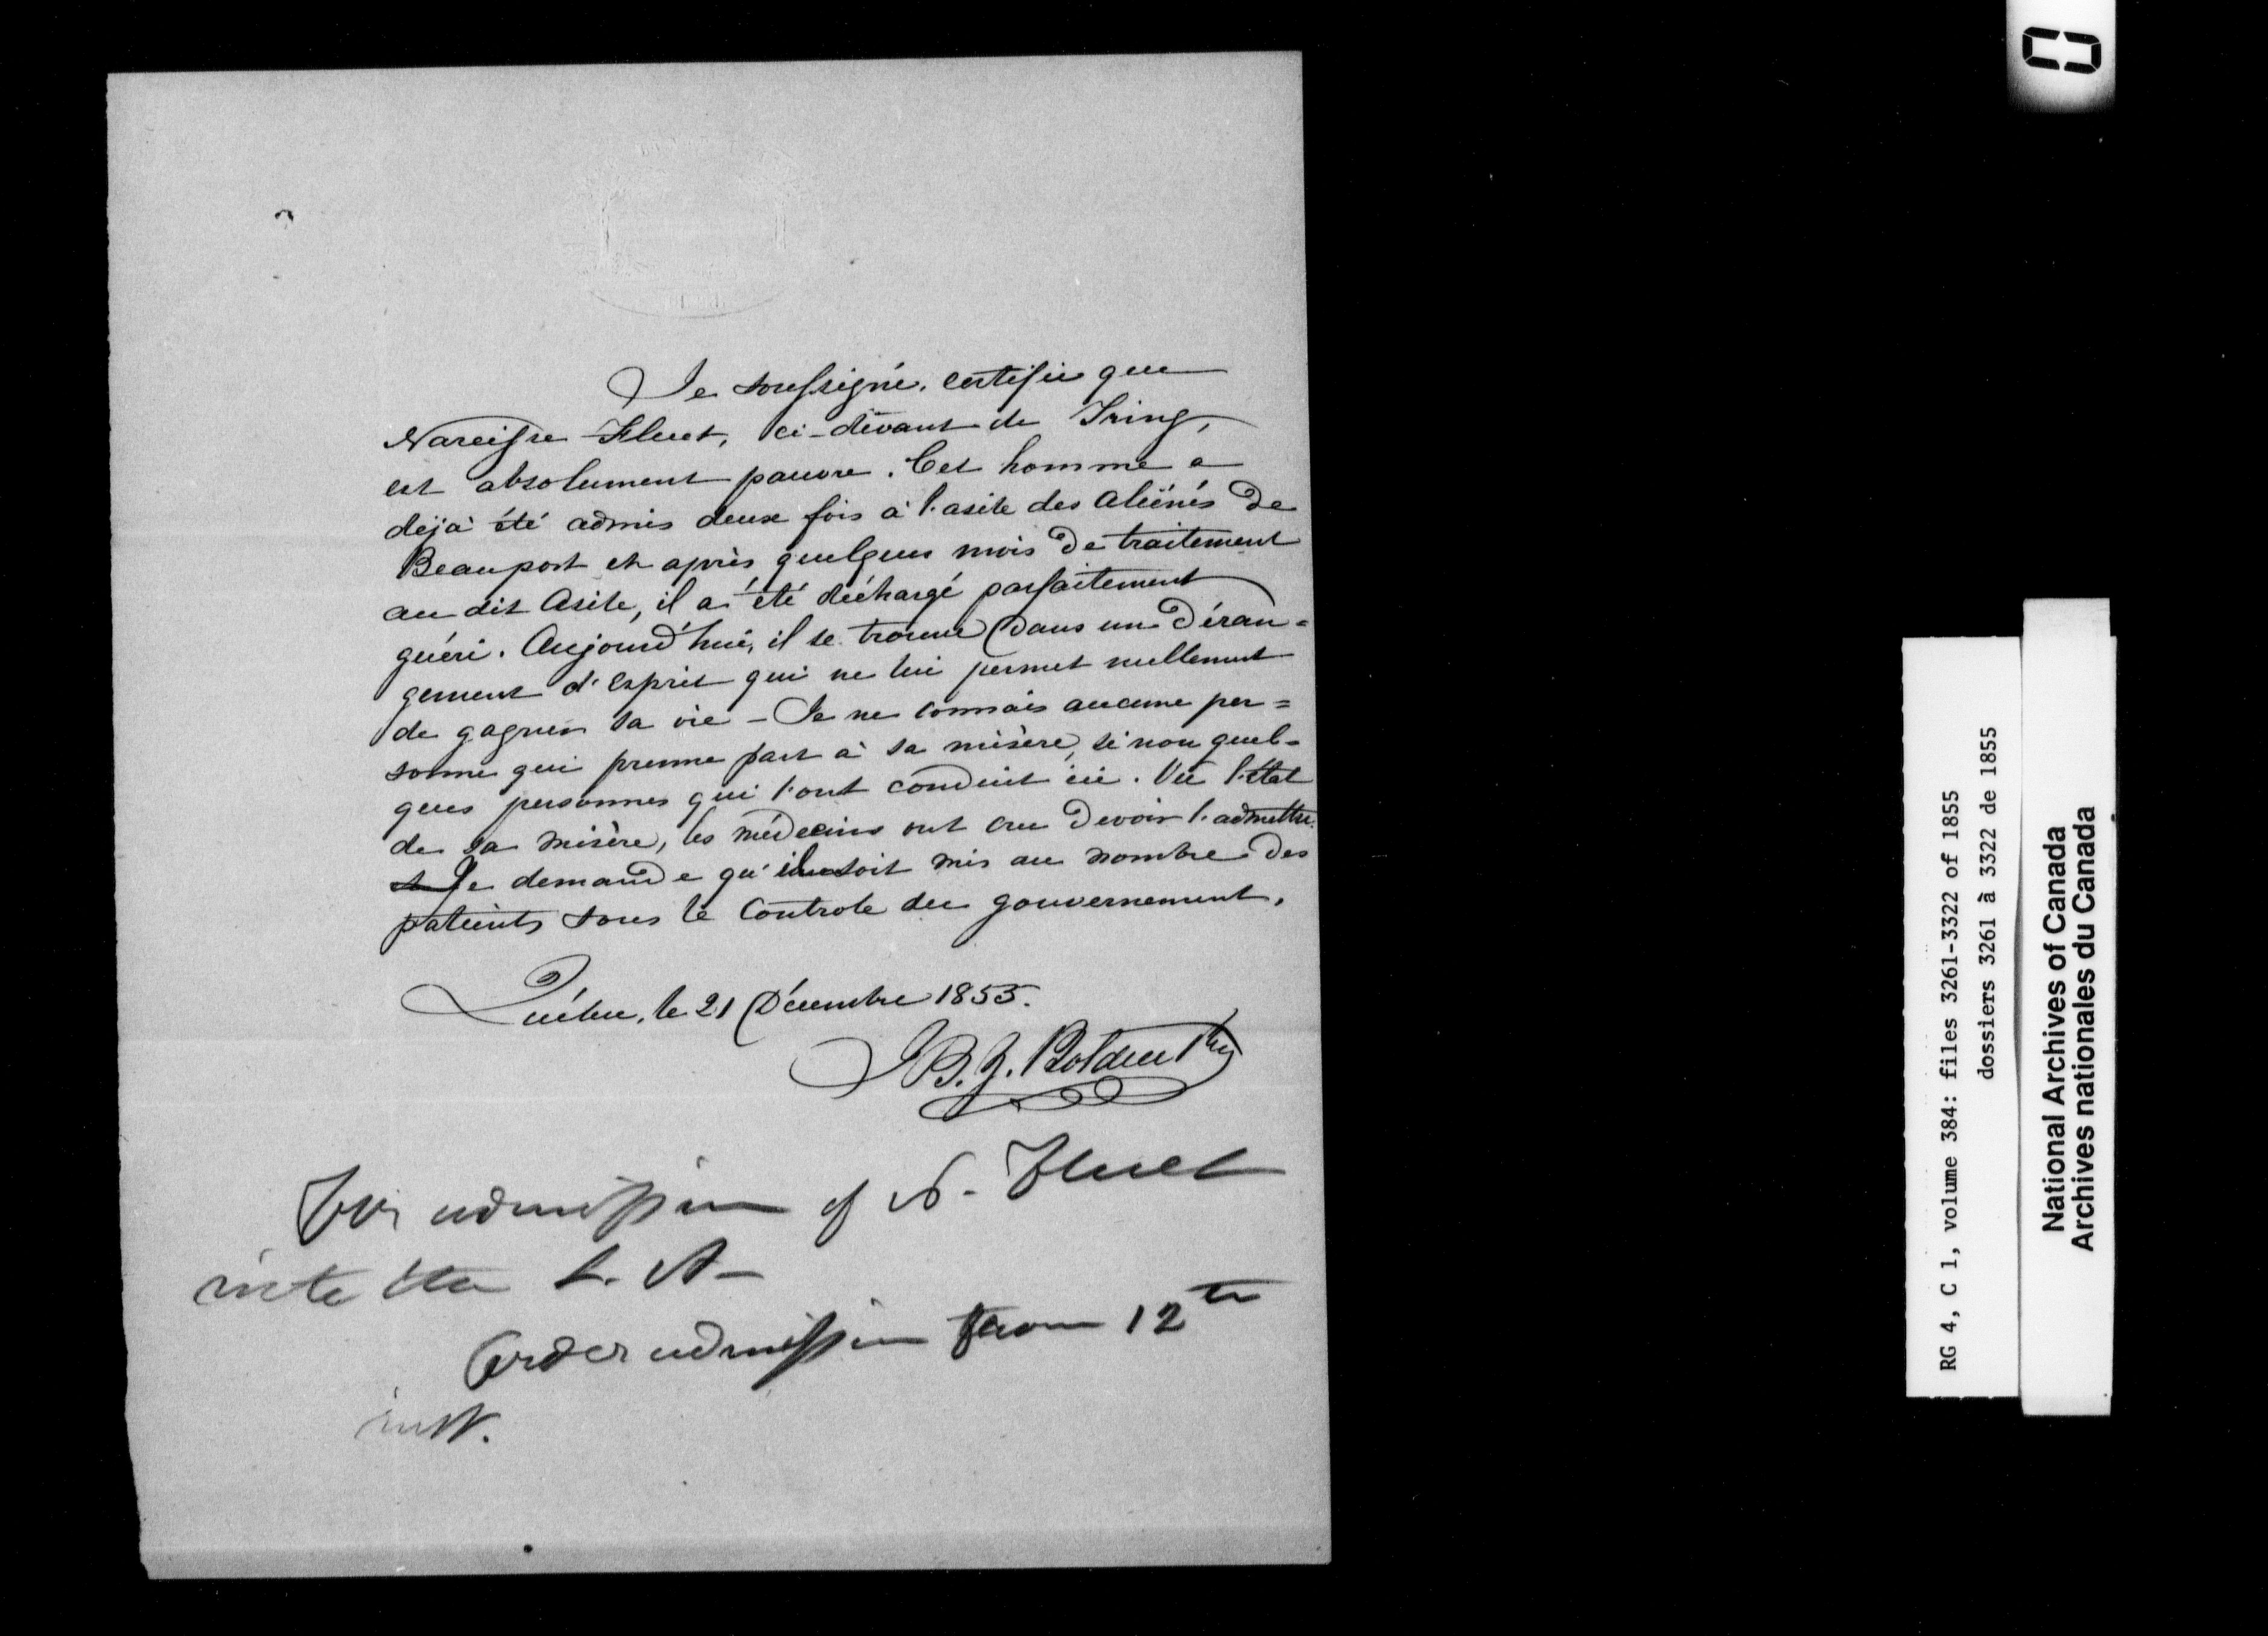 Je soussigné, certifie que
Narcisse Fluet, ci-devant de Tring,
est absolument pauvre. Cet homme a
déjà été admis deux fois à l'asile des aliénés de
Beauport et après quelques mois de traitement
au dit Asile, il a été déchargé parfaitement
guéri. Aujourd'hui, il se trouve dans un déran=
gement d'esprit qui ne lui permet nullement
de gagner sa vie - Je ne connais aucune per=
sonne qui prenne part à sa misère, si non quel-
ques personnes qui l'ont conduit ici. Vu l'état
de sa misère, les médecins ont cru devoir l'admettre.
et Je demande qu'il soit mis au nombre des
patients sous le controle du gouvernement.
Québec, le 21 Décembre 1855.
J B. Z. Bolduc Ptre
For admission of N. Fluet
into the L. A-
Order admission from 12th
inst.
RG 4, C 1, volume 384: files 3261-3322 of 1855
dossiers 3261 à 3322 de 1855
National Archives of Canada
Archives nationales du Canada